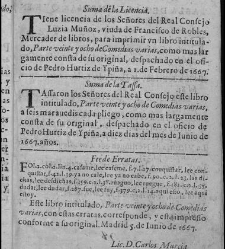 Suma de la Licencia.
TIene licencia de los Señores del Real Consejo
Luzia Muñoz, viuda de Francisco de Robles,
Mercader de libros, para imprimir vn libro intitula-
do, Parte veinte y ocho de Comedias varias, como mas lar
gamente consta de su original, despachado en el ofi-
cio de Pedro Hurtiz de Ypiña, a 2. de Febrero de 1667.
Suma de la Tassa.
TAssaron los Señores del Real Consejo este libro
intitulado, Parte veinte y ocho de Comedias varias,
a seis marauedis cada pliego, como mas largamente
consta de su original, despachado en el oficio de
Pedro Hurtiz de Ypiña, a diez dias del mes de Iunio de
1667. años.
Fee de Erratas.
Este libro intitulado, Parte veinte y ocho de Comedias
varias, con estas erratas, corresponde, y està impresso
conforme a su original. Madrid 5. de Iunio de 1667.
Lic. D. Carlos Murcia